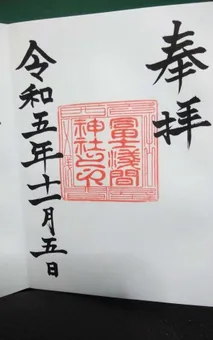 奉拝
冨士淺間
神社之印
令和五年十一月五日